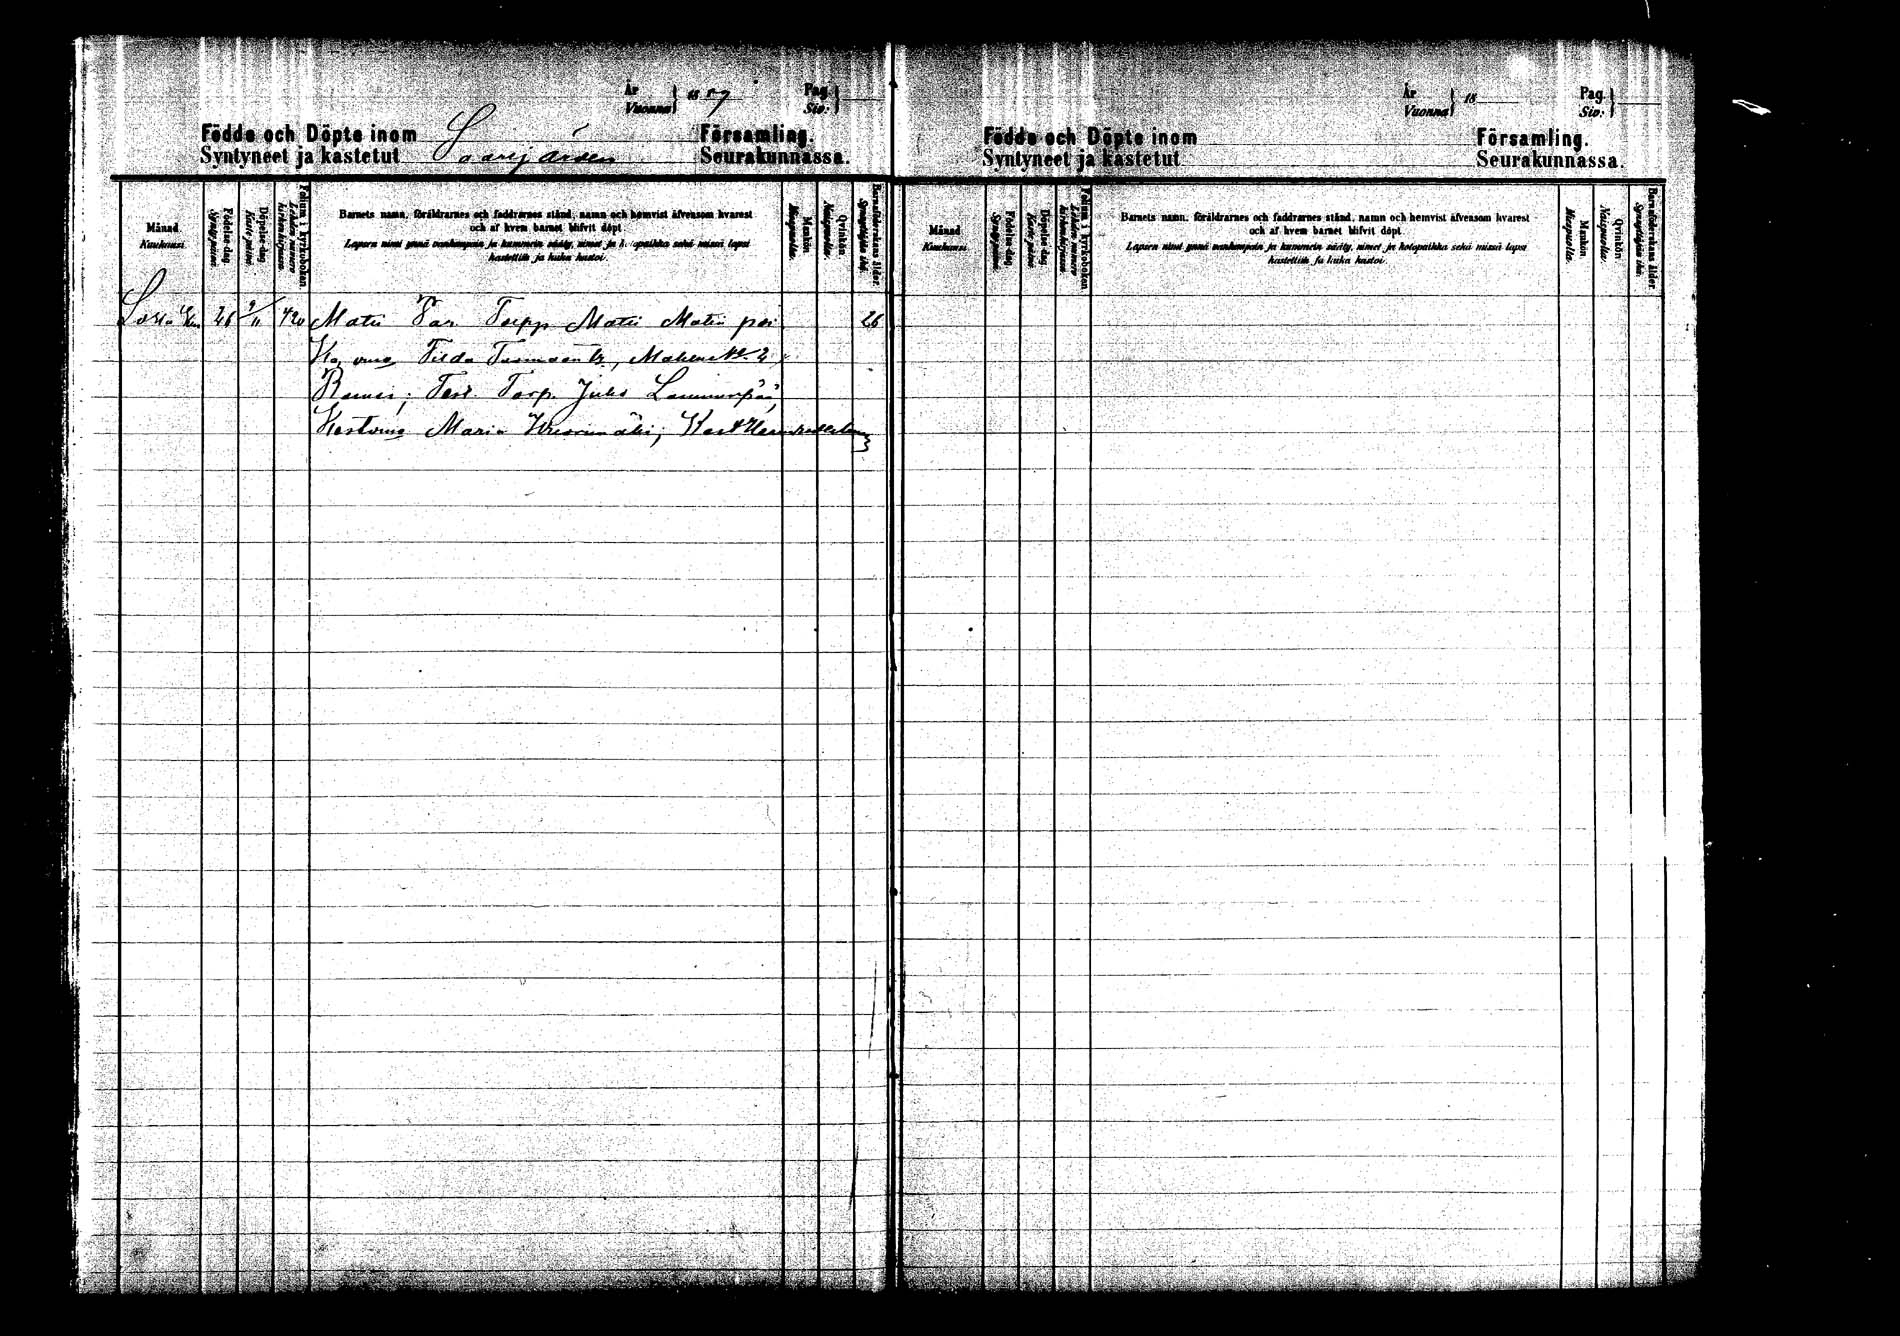 År
Vuonna } 1887
Pag.
Siv. }
Födde och Döpte inom
Syntyneet ja kastetut
Saarijärven
Församling.
Seurakunnassa.
Månad.
Kuukausi.
Födelse-dag.
Syntymä-päivä.
Döpelse-dag.
Kaste-päivä.
Folium i kyrkoboken.
Lehden numero kirkonkirjassa.
Barnets namn, föräldrarnes och faddrarnes stånd, namn och hemvist äfvensom hvarest
och af hvem barnet blifvit döpt.
Lapsen nimi ynnä vanhempain ja kummein sääty, nimet ja kotopaikka sekä missä lapsi
kastettiin ja kuka kastoi.
Mankön.
Miespuolia.
Qvinkön.
Naispuolia.
Barnaföderskans ålder.
Synnyttäjän ikä.
Loka 26 9/11 420 Matti Torpp Matti Matin poi 26
Tilda
Torp. Juho Lamminpää,
Maria
År
Vuonna } 18
Pag.
Siv. }
Födde och Döpte inom
Syntyneet ja kastetut
Församling.
Seurakunnassa.
Månad
Kuukausi.
Födelse-dag.
Syntymä-päivä.
Döpelse-dag.
Kaste-päivä.
Folium i kyrkoboken.
Lehden numero kirkonkirjassa.
Barnets namn, föräldrarnes och faddrarnes stånd, namn och hemvist äfvensom hvarest
och af hvem barnet blifvit döpt.
Lapsen nimi ynnä vanhempain ja kummein sääty, nimet ja kotopaikka sekä missä lapsi
kastettiin ja kuka kastoi.
Mankön.
Miespuolia.
Qvinkön.
Naispuolia.
Barnaföderskans ålder.
Synnyttäjän ikä.